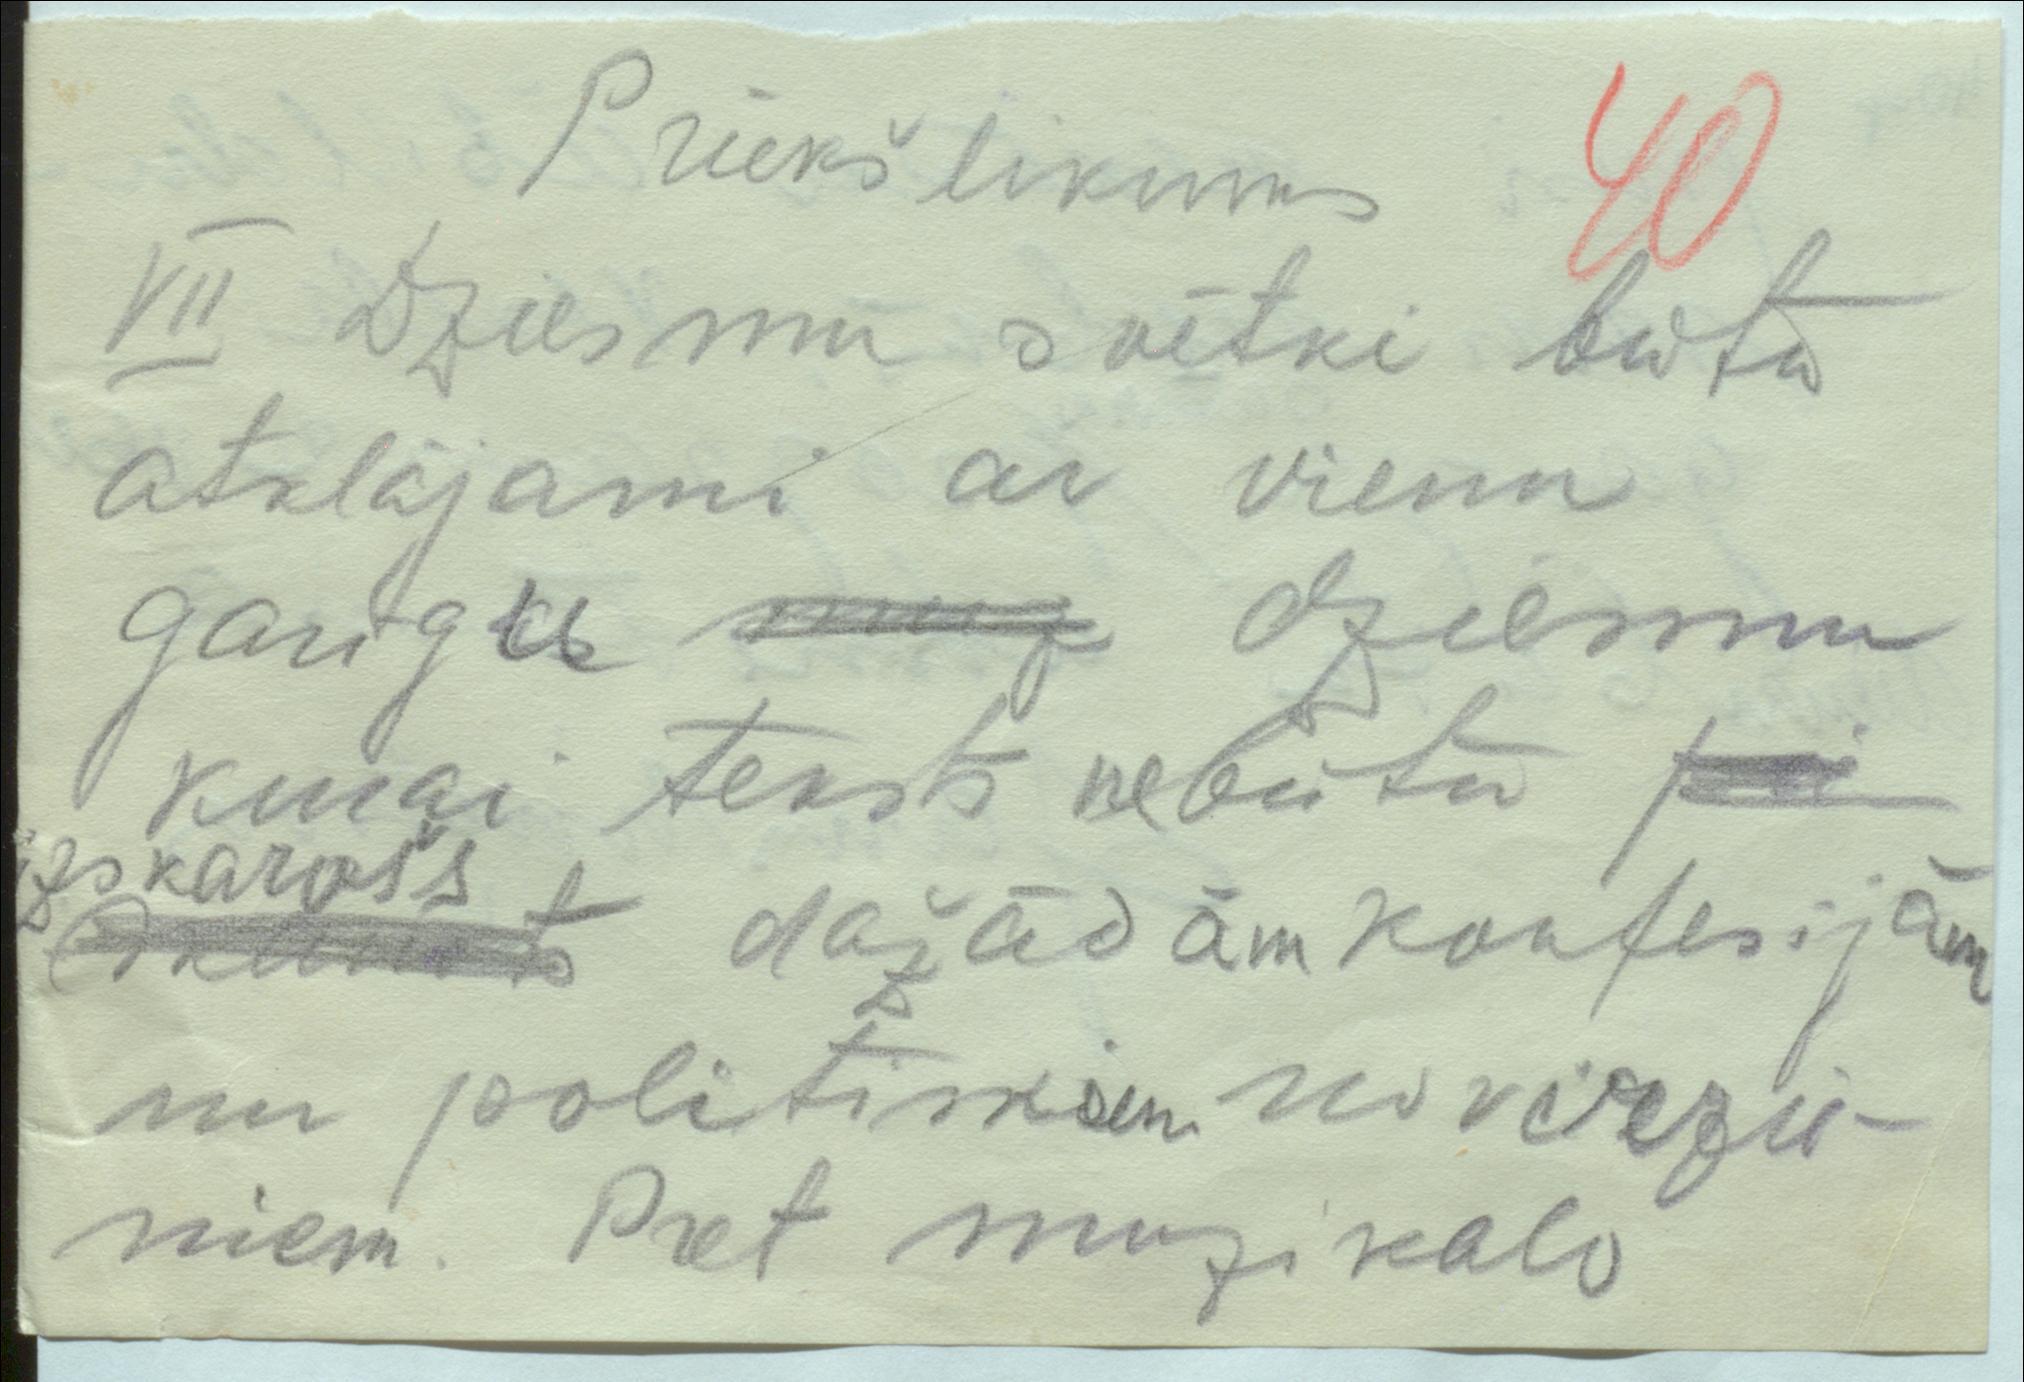 Priekšlikums
40
VII Dziesmu svētki būtu
atklājami ar vienu
garīgu dziesmu
kurai teksts nebūtu
izskarošs dažādām konfesijām
un politiskiem novirzie-
niem. Pret muzikalo